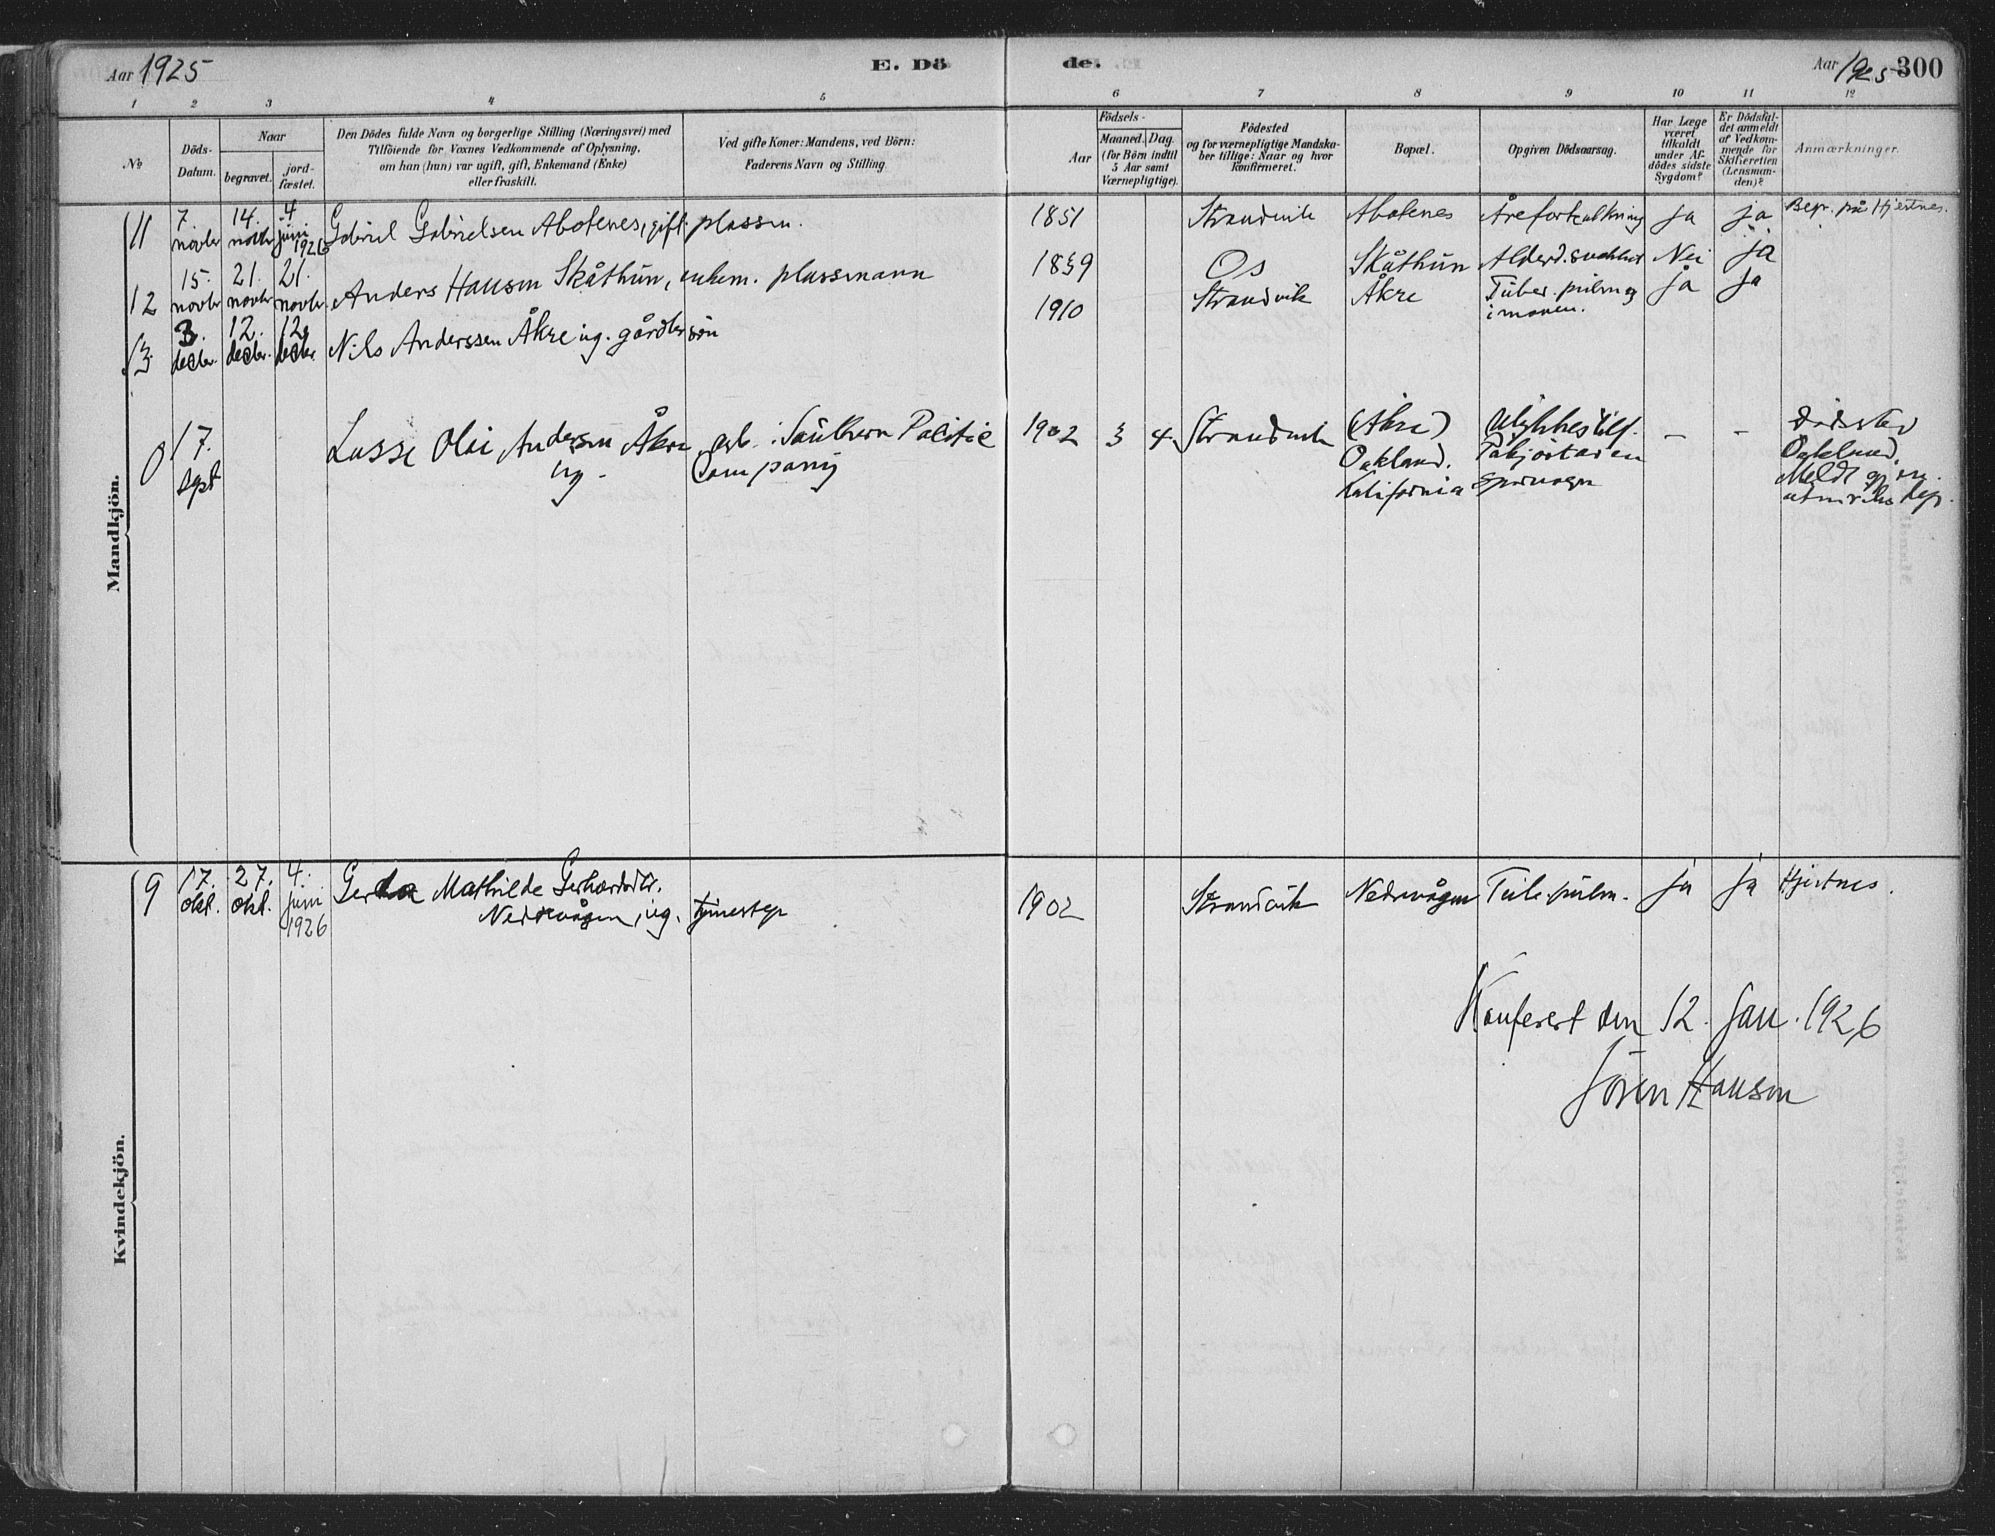 Aar 1925
E. Döde.
Aar 1925
300
1 2 3 4 5 6 7 8 9 10 11 12
No
Döds-Datum.
Naar
begravet.
jord-fæstet.
Den Dödes fulde Navn og borgerlige Stilling (Næringsvei) med
Tilföiende for Voxnes Vedkommende af Oplysning,
om han (hun) var ugift, gift, Enkemand (Enke)
eller fraskilt.
Ved gifte Koner: Mandens, ved Börn:
Faderens Navn og Stilling.
Födsels-
Aar
Maaned. Dag.
(for Börn indtil
5 Aar samt
Værnepligtige).
Födested
og for værnepligtige Mandska-
ber tillige: Naar og hvor
konfirmeret.
Bopæl.
Opgiven Dödsaarsag.
Har Læge
været
tilkaldt
under Af-
dödes sidste
Sygdom?
Er Dödsfal-
det anmeldt
af Vedkom-
mende for
Skifteretten
(Lensman-
den)?
Anmærkninger.
Mandkjön.
11 7 novbr 14. novbr 4 juni 1926 Gabriel Gabrielsen Abotenes, gift. plassm. 1851 Strandvik Abotenes Åreforkalkning ja ja Begr. på Hjertnes.
12 15. novbr 21. novbr 21. novbr Anders Hansen Skåthun, enkem. plassmann 1839 Os Skåthun Alderd.svakhet Nei ja
13 3. decbr. 12. decbr. 12. decbr Nils Anderssen Åkre ug. gårdbr søn 1910 Strandvik Åkre Tuber. pulm og i maven. ja ja
0 17. sept Lasse Olai Andersen Åkre, arb. i Southern Pacific
ug. Company
1902 3 4. Strandvik (Åkre) Oakland. Kalifornia
Ulykkestilf. Påkjørt av en sporvogn
– –
Dødsted Oakland.
Meldt gj.
utenriks dep.
Kvindekjön.
9 17. okt. 27. okt. 4. juni 1926 Gerda Mathilde Gerhardsdtr.
Nedrevågen, ug. tjenestep
1902 Strandvik Nedrevågen Tub. pulm. ja ja Hjertnes.
Konferert den 12. jan. 1926
Søren Hansen